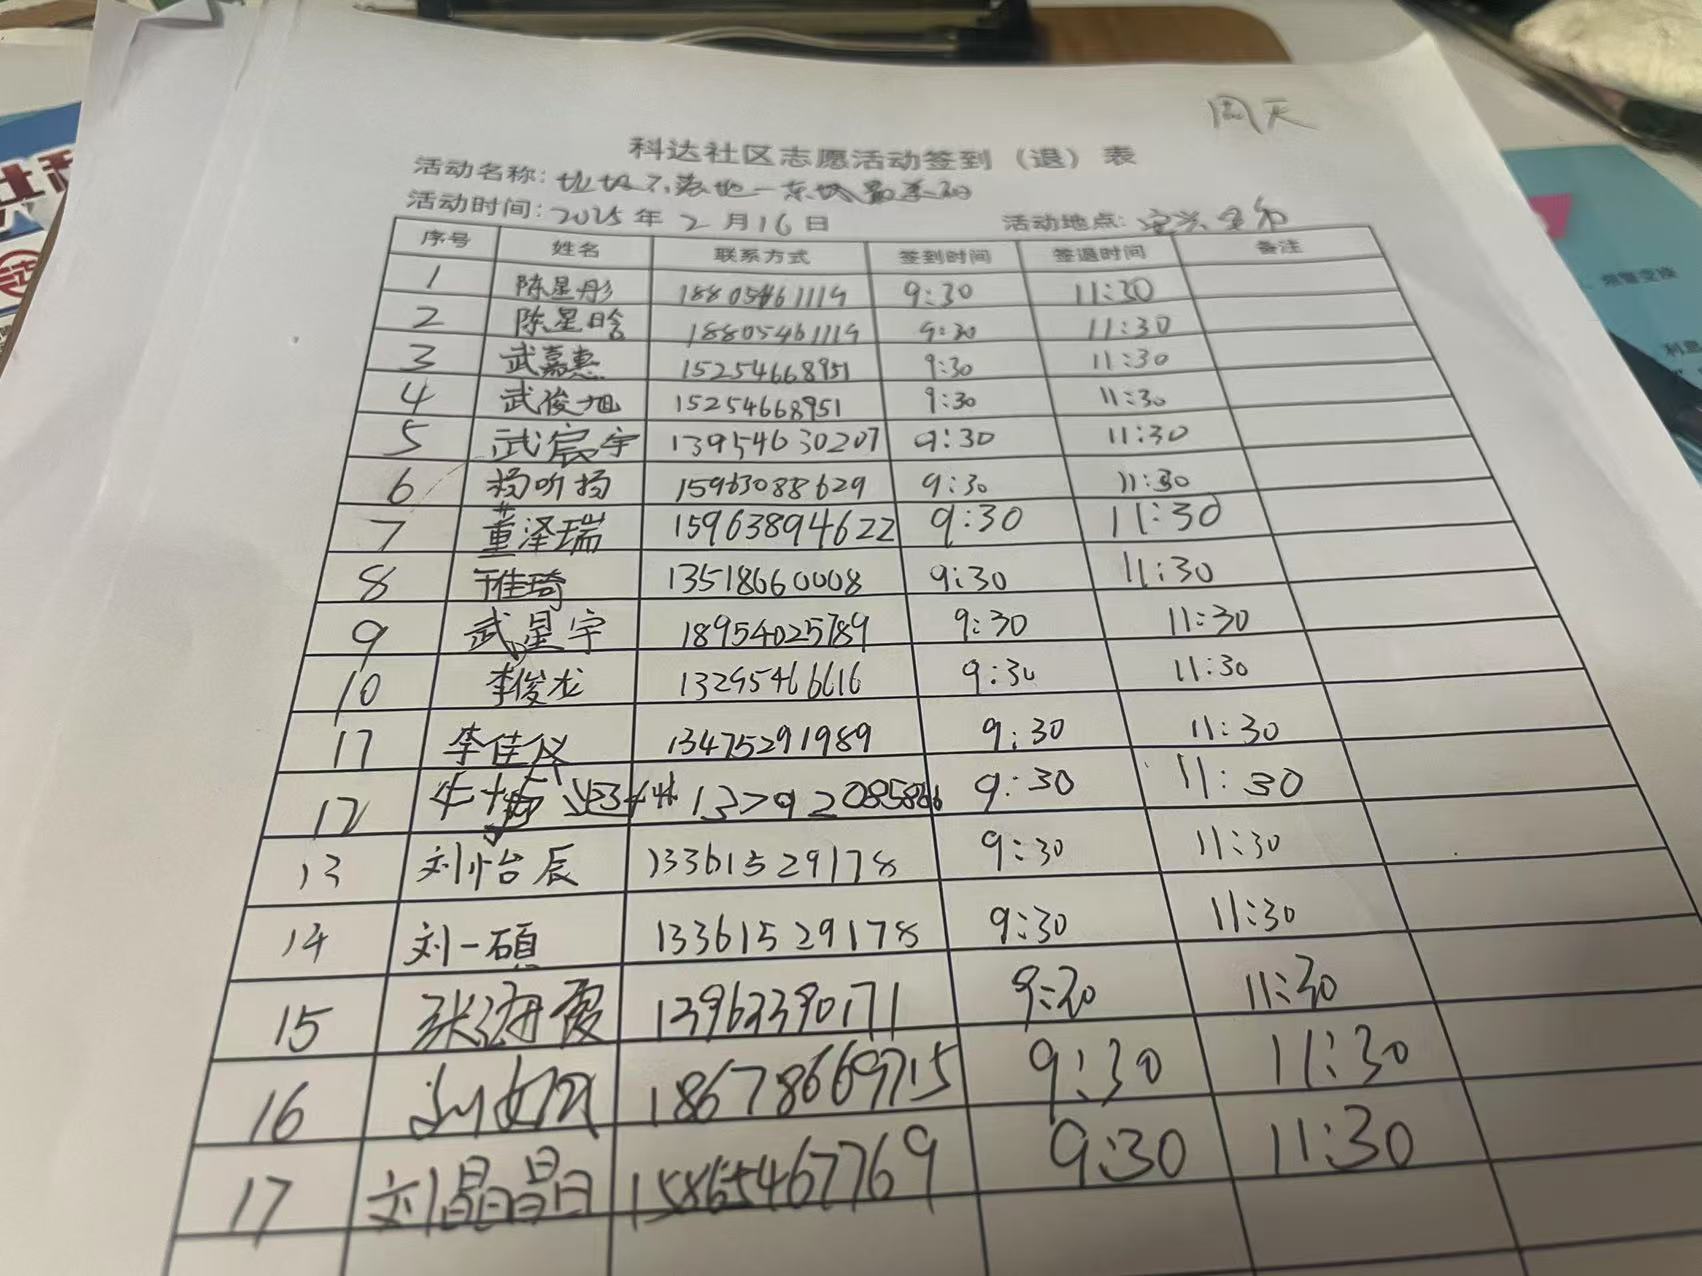 周天
科达社区志愿活动签到（退）表
活动名称：垃圾不落地一东城最美的
活动时间：2025年2月16日 活动地点：
序号 姓名 联系方式 签到时间 签退时间 备注
1 陈星彤 18805461119 9:30 11:30
2 陈星晗 18805461119 9:30 11:30
3 武嘉惠 15254668951 9:30 11:30
4 武俊旭 15254668951 9:30 11:30
5 武宸宇 13954630207 9:30 11:30
6 杨昕扬 15963088629 9:30 11:30
7 董泽瑞 15963894622 9:30 11:30
8 于佳琦 13518660008 9:30 11:30
9 武星宇 18954025789 9:30 11:30
10 李俊龙 13295466616 9:30 11:30
11 李佳仪 13475291989 9:30 11:30
12 9:30 11:30
13 刘怡辰 13361529178 9:30 11:30
14 刘一硕 13361529178 9:30 11:30
15 张海霞 13962390171 9:30 11:30
16 18678669715 9:30 11:30
17 刘晶晶 15865467769 9:30 11:30